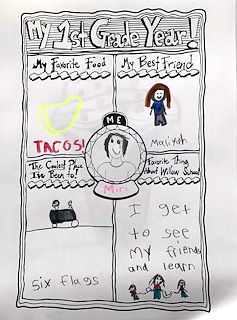 My 1st Grade Year!
My Favorite Food
TACOS!
My Best Friend
Maliyah
ME
Miri
The Coolest Place
I've Been to!
six flags
Favorite Thing
About Willow School
I get
to see
My friends
and learn